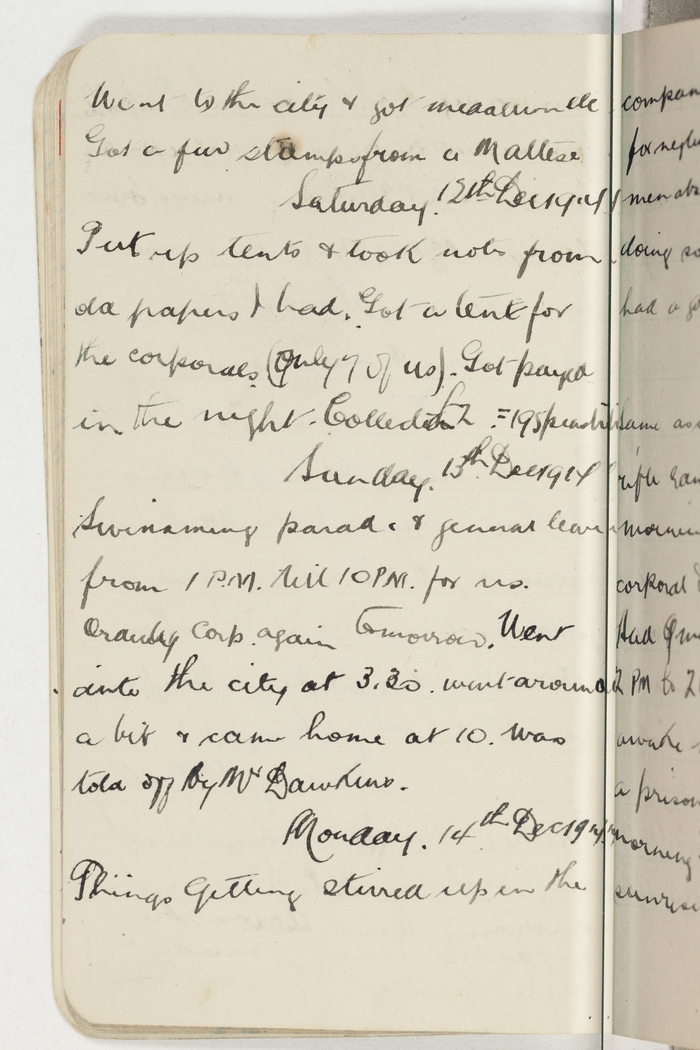 Went to the city & got medallion etc
Got a few stamps from a Maltese
Saturday. 12th Dec 1914
Put up tents & took nots from
da papers I had. Got a tent for
the corporals (only 7 of us). Got payed
in the night. Collected £2 = 195 piastres
Sunday. 13th Dec 1914
Swimming parade & general leave
from 1 P.M. till 10 P.M. for us.
Orderly Corp. again tomorrow. Went
into the city at 3.30. went around
a bit & came home at 10. Was
told off by Mr Dawkins.
Monday. 14th Dec 1914
Things getting stirred up in the
compan
for negle
men abs
doing so
had a g
same as
rifle
mornin
corporal
Had
2 PM to 2
awake
a prison
morning
sunrise